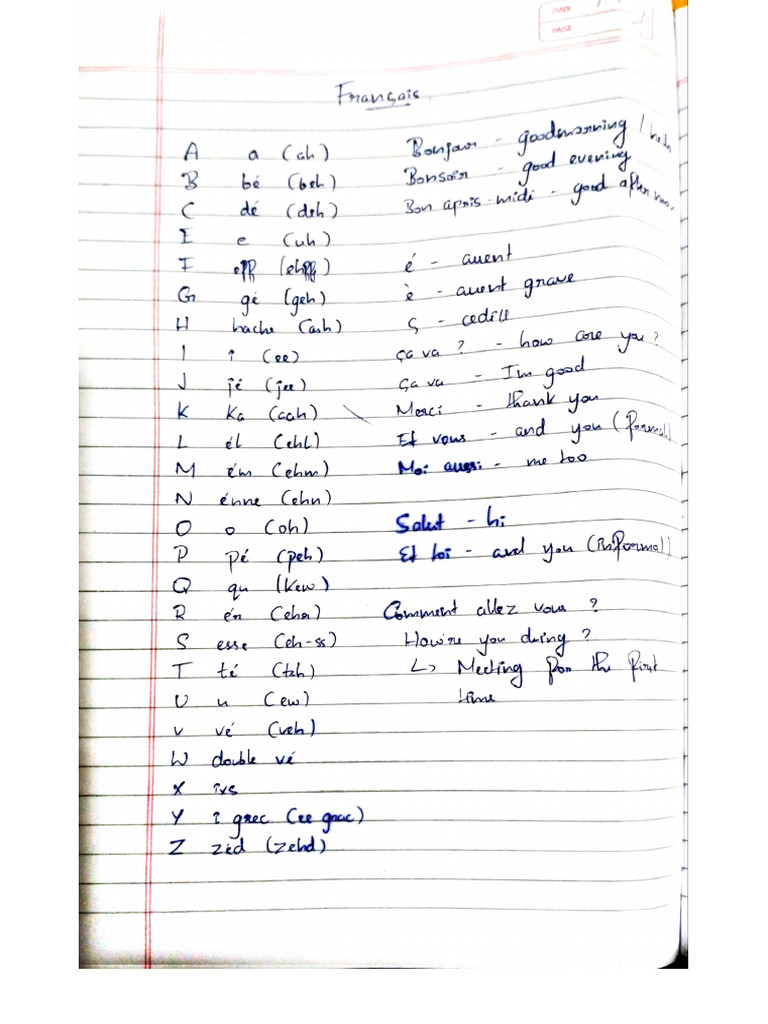 CLASS
PAGE
Français.
A a (ah) Bonjour - goodmorning /
B bé (beh) Bonsoir - good evening
C dé (deh) Bon apris-midi - good after noon.
E e (uh)
F eff (ehff) é - auent
G gé (geh) è - auent grave
H hache (ash) ç - cedill
I i (ee) ça va ? - how are you ?
J jé (jee) ça va - I'm good
K Ka (aah) Merci - thank you
L él (ehl) Et vous - and you (formal)
M ém (ehm) Moi aussi - me too
N énne (ehn)
O o (oh) Salut - hi
P pé (peh) Et toi - and you (informal)
Q qu (kew)
R ér (ehr) Comment allez vous ?
S esse (eh-ss) How're you doing ?
T té (teh) ↳ Meeting for the first
U u (ew) time
V vé (veh)
W double vé
X ixs
Y i grec (ee grec)
Z zéd (zehd)